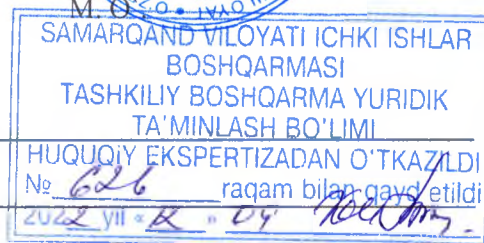 M. O.
SAMARQAND VILOYATI ICHKI ISHLAR
BOSHQARMASI
TASHKILIY BOSHQARMA YURIDIK
TA'MINLASH BO'LIMI
HUQUQIY EKSPERTIZADAN O'TKAZILDI
№ 626 raqam bilan qayd etildi
2022 yil « 12 » 04